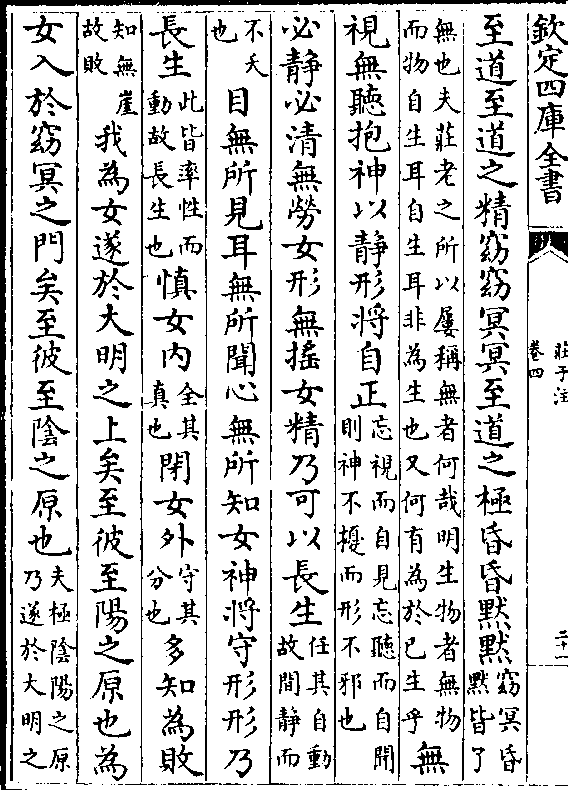 欽定四庫全書
莊子注
卷四
二十一
至道至道之精窈窈冥冥至道之極昏昏默默窈冥昏默皆了
無也夫莊老之所以屢稱無者何哉明生物者無物而物自生耳自生耳非為生也又何有為於已生乎無
視無聽抱神以静形將自正忘視而自見忘聽而自聞則神不擾而形不邪也
必静必清無勞女形無搖女精乃可以長生任其自動故間静而
不夭也目無所見耳無所聞心無所知女神將守形形乃
長生此皆率性而動故長生也慎女内全其真也閉女外守其分也多知為敗
知無崖故敗我為女遂於大明之上矣至彼至陽之原也為
女入於窈冥之門矣至彼至陰之原也夫極陰陽之原乃遂於大明之